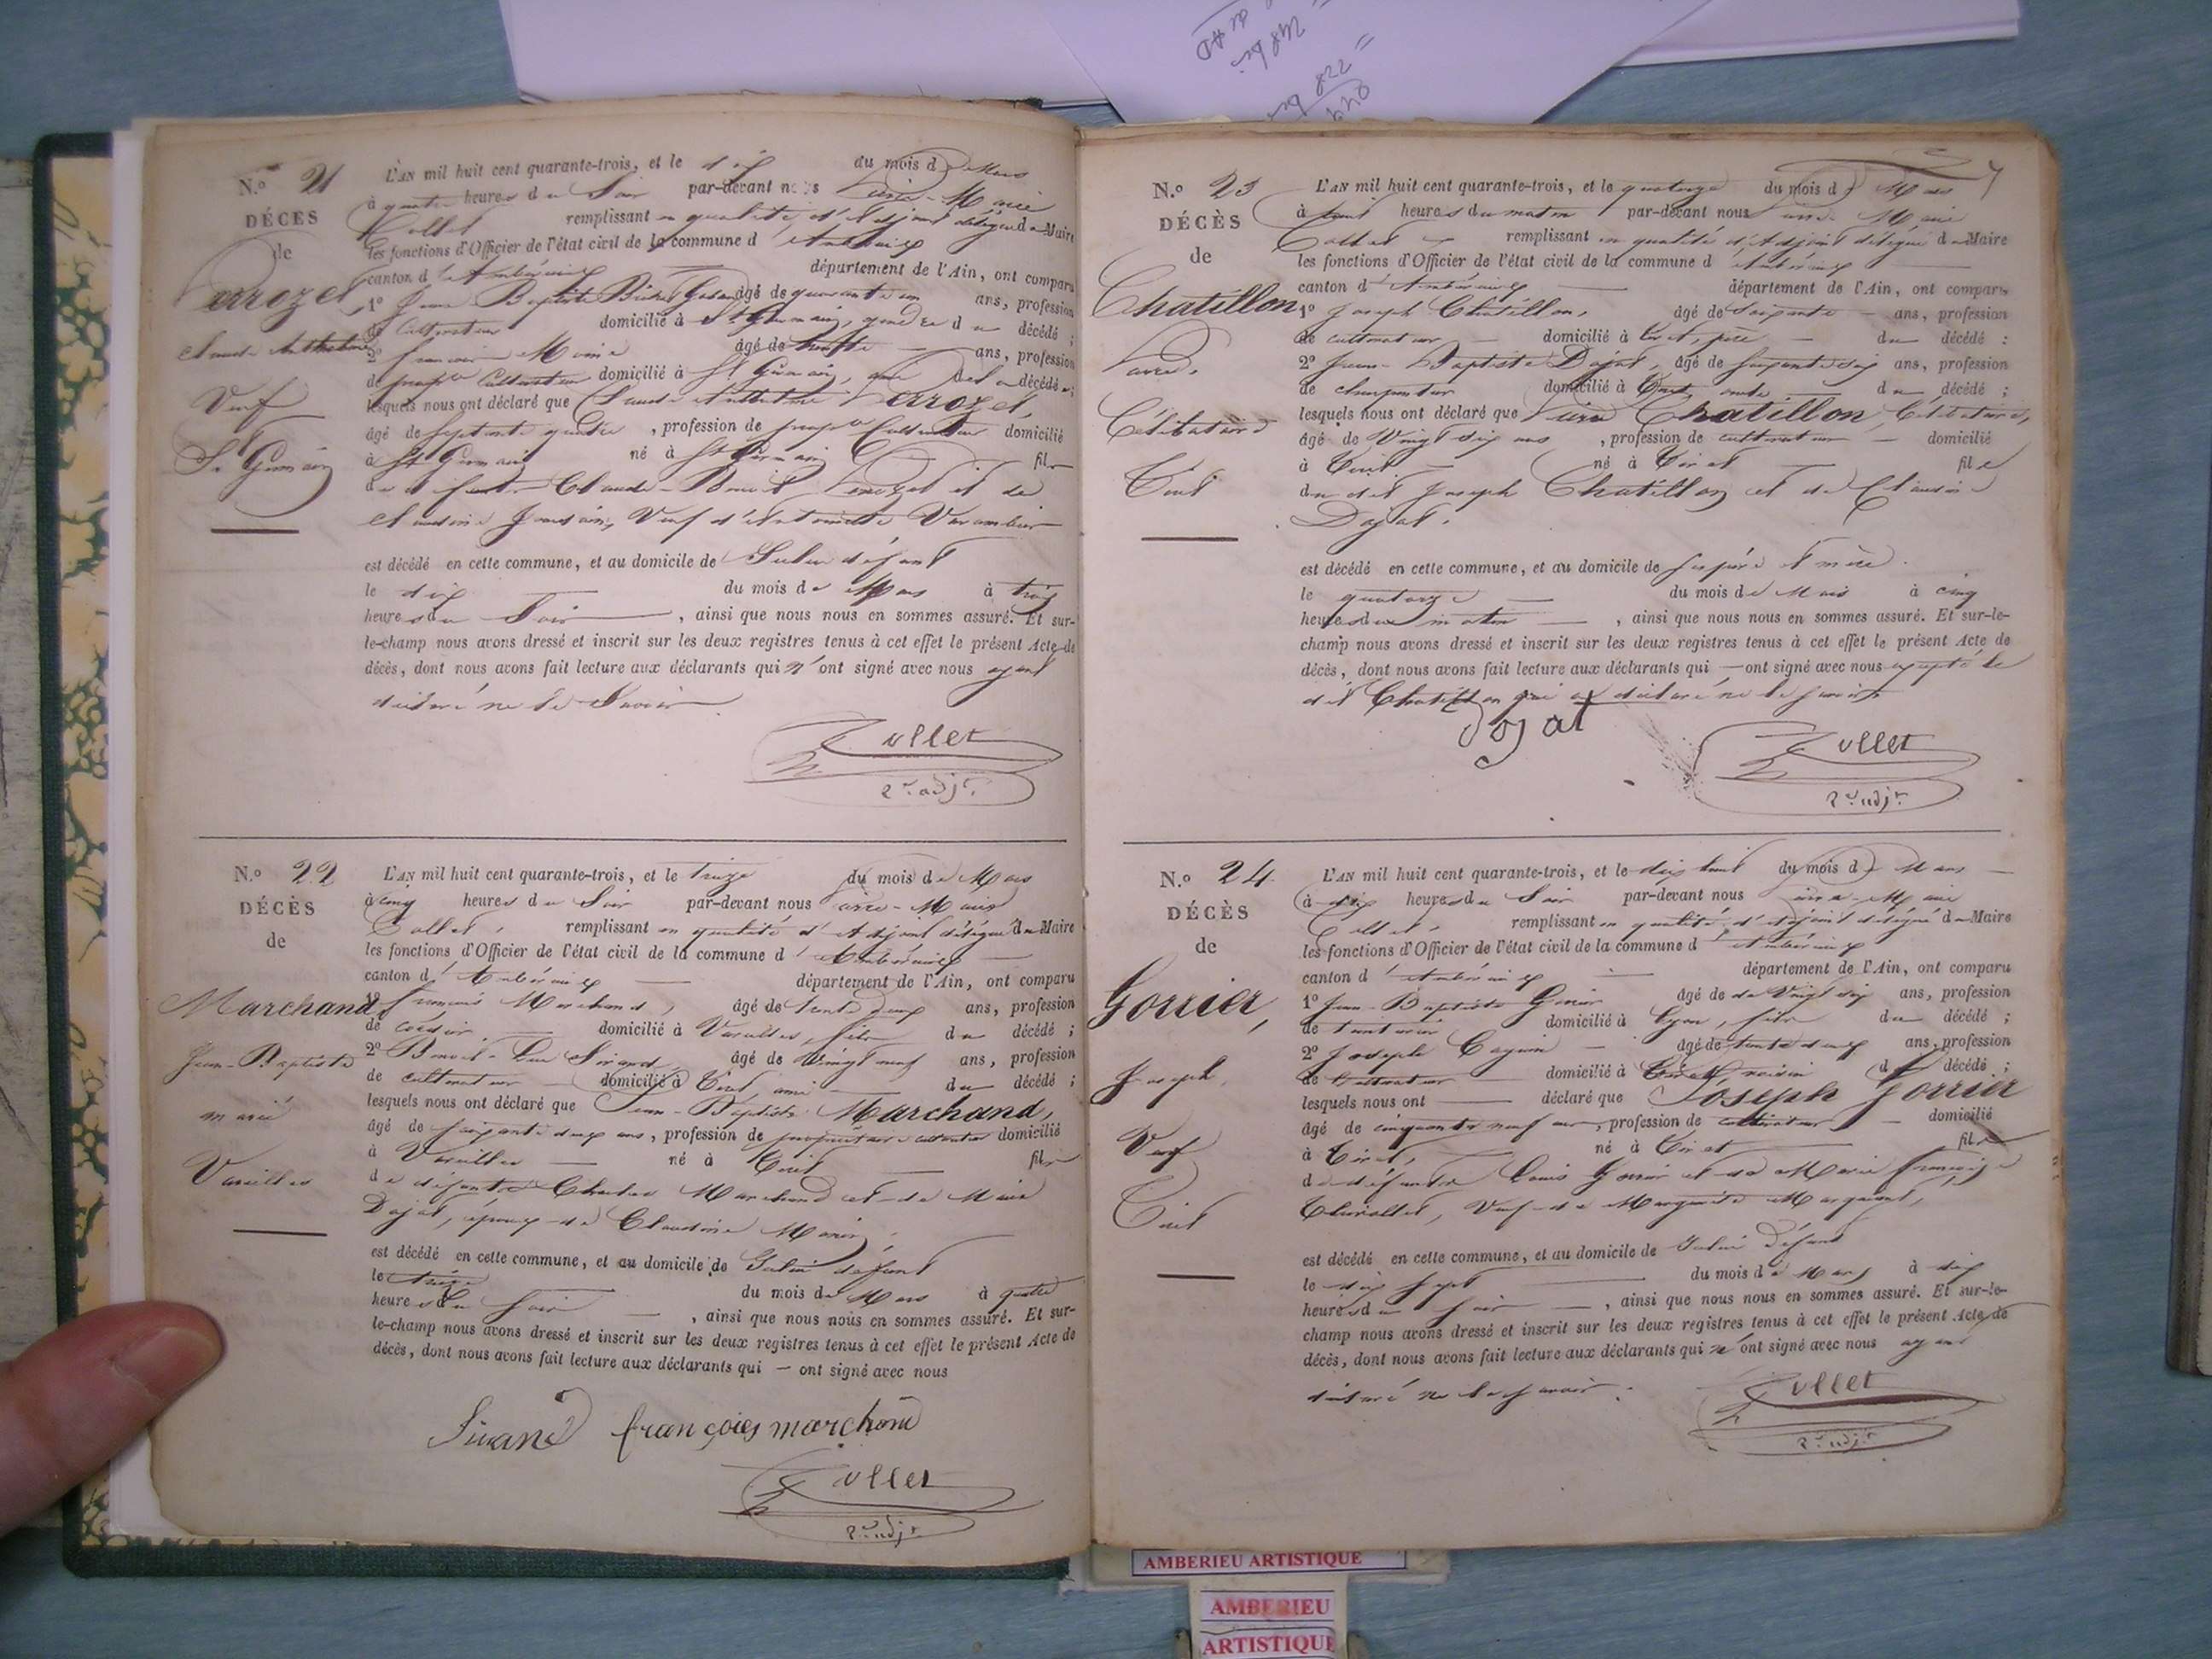 N.o 21
DÉCES
de
Perrozet,
Claude Anthelme
Veuf
St Germain
L'AN mil huit cent quarante-trois, et le dix du mois de Mars
à quatre heures du Soir par-devant nous Pierre-Marie
Collet remplissant en qualité d'Adjoint délégué du Maire
les fonctions d'Officier de l'état civil de la commune d'Ambérieux
canton d'Ambérieux département de l'Ain, ont comparu
1o Jean Baptiste âgé de quarante un ans, profession
de Cultivateur domicilié à St Germain, gendre du décédé ;
2o françois Moine âgé de trente ans, profession
de Cultivateur domicilié à St Germain, du décédé ;
lesquels nous ont déclaré que Claude Anthelme Perrozet,
âgé de septante quatre, profession de Cultivateur domicilié
à St Germain né à St Germain fils
de défunts Claude-Benoit Perrozet et de
Claudine Jourdain, Veuf d'Antoinette Varambier
est décédé en cette commune, et au domicile de Sudit défunt
le dix du mois de Mars à trois
heures du Soir, ainsi que nous nous en sommes assuré. Et sur-
le-champ nous avons dressé et inscrit sur les deux registres tenus à cet effet le présent Acte de
décès, dont nous avons fait lecture aux déclarants qui n'ont signé avec nous ayant
déclaré ne le Savoir
Collet
2me adjt.
N.o 22
DÉCÈS
de
Marchand
Jean-Baptiste
marié
Vareilles
L'AN mil huit cent quarante-trois, et le treize du mois de Mars
à cinq heures du Soir par-devant nous Pierre-Marie
Collet, remplissant en qualité d'Adjoint délégué du Maire
les fonctions d'Officier de l'état civil de la commune d'Ambérieux
canton d'Ambérieux département de l'Ain, ont comparu
1o françois Marchand, âgé de trente deux ans, profession
de domicilié à Vareilles, fils du décédé ;
2o Benoit Sirand, âgé de vingt neuf ans, profession
de cultivateur domicilié à Tiret, ami du décédé ;
lesquels nous ont déclaré que Jean-Baptiste Marchand,
âgé de soixante deux ans, profession de propriétaire cultivateur domicilié
à Vareilles né à Tiret fils
de défunts Charles Marchand et de Marie
Dojat, époux de Claudine Morin,
est décédé en cette commune, et au domicile de Sudit défunt
le treize du mois de Mars à quatre
heures du Soir, ainsi que nous nous en sommes assuré. Et sur-
le-champ nous avons dressé et inscrit sur les deux registres tenus à cet effet le présent Acte de
décès, dont nous avons fait lecture aux déclarants qui — ont signé avec nous
Sirand françois marchand
Collet
2me adjt
N.o 23
DÉCÈS
de
Chatillon,
Pierre,
Célibataire
Tiret
L'AN mil huit cent quarante-trois, et le quatorze du mois de Mars
à huit heures du matin par-devant nous Pierre Marie
Collet remplissant en qualité d'Adjoint délégué du Maire
les fonctions d'Officier de l'état civil de la commune d'Ambérieux
canton d'Ambérieux département de l'Ain, ont comparu
1o Joseph Chatillon, âgé de soixante ans, profession
de cultivateur domicilié à Tiret, père du décédé ;
2o Jean-Baptiste Dojat, âgé de soixante dix ans, profession
de charpentier domicilié à Tiret, oncle du décédé ;
lesquels nous ont déclaré que Pierre Chatillon, Célibataire,
âgé de Vingt six ans, profession de cultivateur domicilié
à Tiret né à Tiret fils
du dit Joseph Chatillon et de Claudine
Dojat.
est décédé en cette commune, et au domicile de ses père et mère.
le quatorze du mois de Mars à cinq
heures du matin, ainsi que nous nous en sommes assuré. Et sur-le-
champ nous avons dressé et inscrit sur les deux registres tenus à cet effet le présent Acte de
décès, dont nous avons fait lecture aux déclarants qui — ont signé avec nous excepté le
dit Chatillon qui a déclaré ne le savoir.
Dojat
Collet
2me adjt
N.o 24
DÉCÈS
de
Gorrier,
Joseph,
Veuf
Tiret
L'AN mil huit cent quarante-trois, et le dix huit du mois de Mars
à dix heures du Soir par-devant nous Pierre-Marie
Collet, remplissant en qualité d'Adjoint délégué du Maire
les fonctions d'Officier de l'état civil de la commune d'Ambérieux
canton d'Ambérieux département de l'Ain, ont comparu
1o Jean-Baptiste Gorrier âgé de de Vingt six ans, profession
de domicilié à Lyon, fils du décédé ;
2o Joseph âgé de trente deux ans, profession
de Cultivateur domicilié à Tiret, voisin du décédé ;
lesquels nous ont déclaré que Joseph Gorrier
âgé de cinquante neuf ans, profession de cultivateur domicilié
à Tiret, né à Tiret fils
de défunts Louis Gorrier et de Marie françoise
Veuf de Marguerite
est décédé en cette commune, et au domicile de Sudit Défunt
le dix sept du mois de Mars à dix
heures du Soir, ainsi que nous nous en sommes assuré. Et sur-le-
champ nous avons dressé et inscrit sur les deux registres tenus à cet effet le présent Acte de
décès, dont nous avons fait lecture aux déclarants qui n'ont signé avec nous ayant
déclaré ne le savoir.
Collet
2me adjt
AMBERIEU ARTISTIQUE
AMBERIEU
ARTISTIQUE